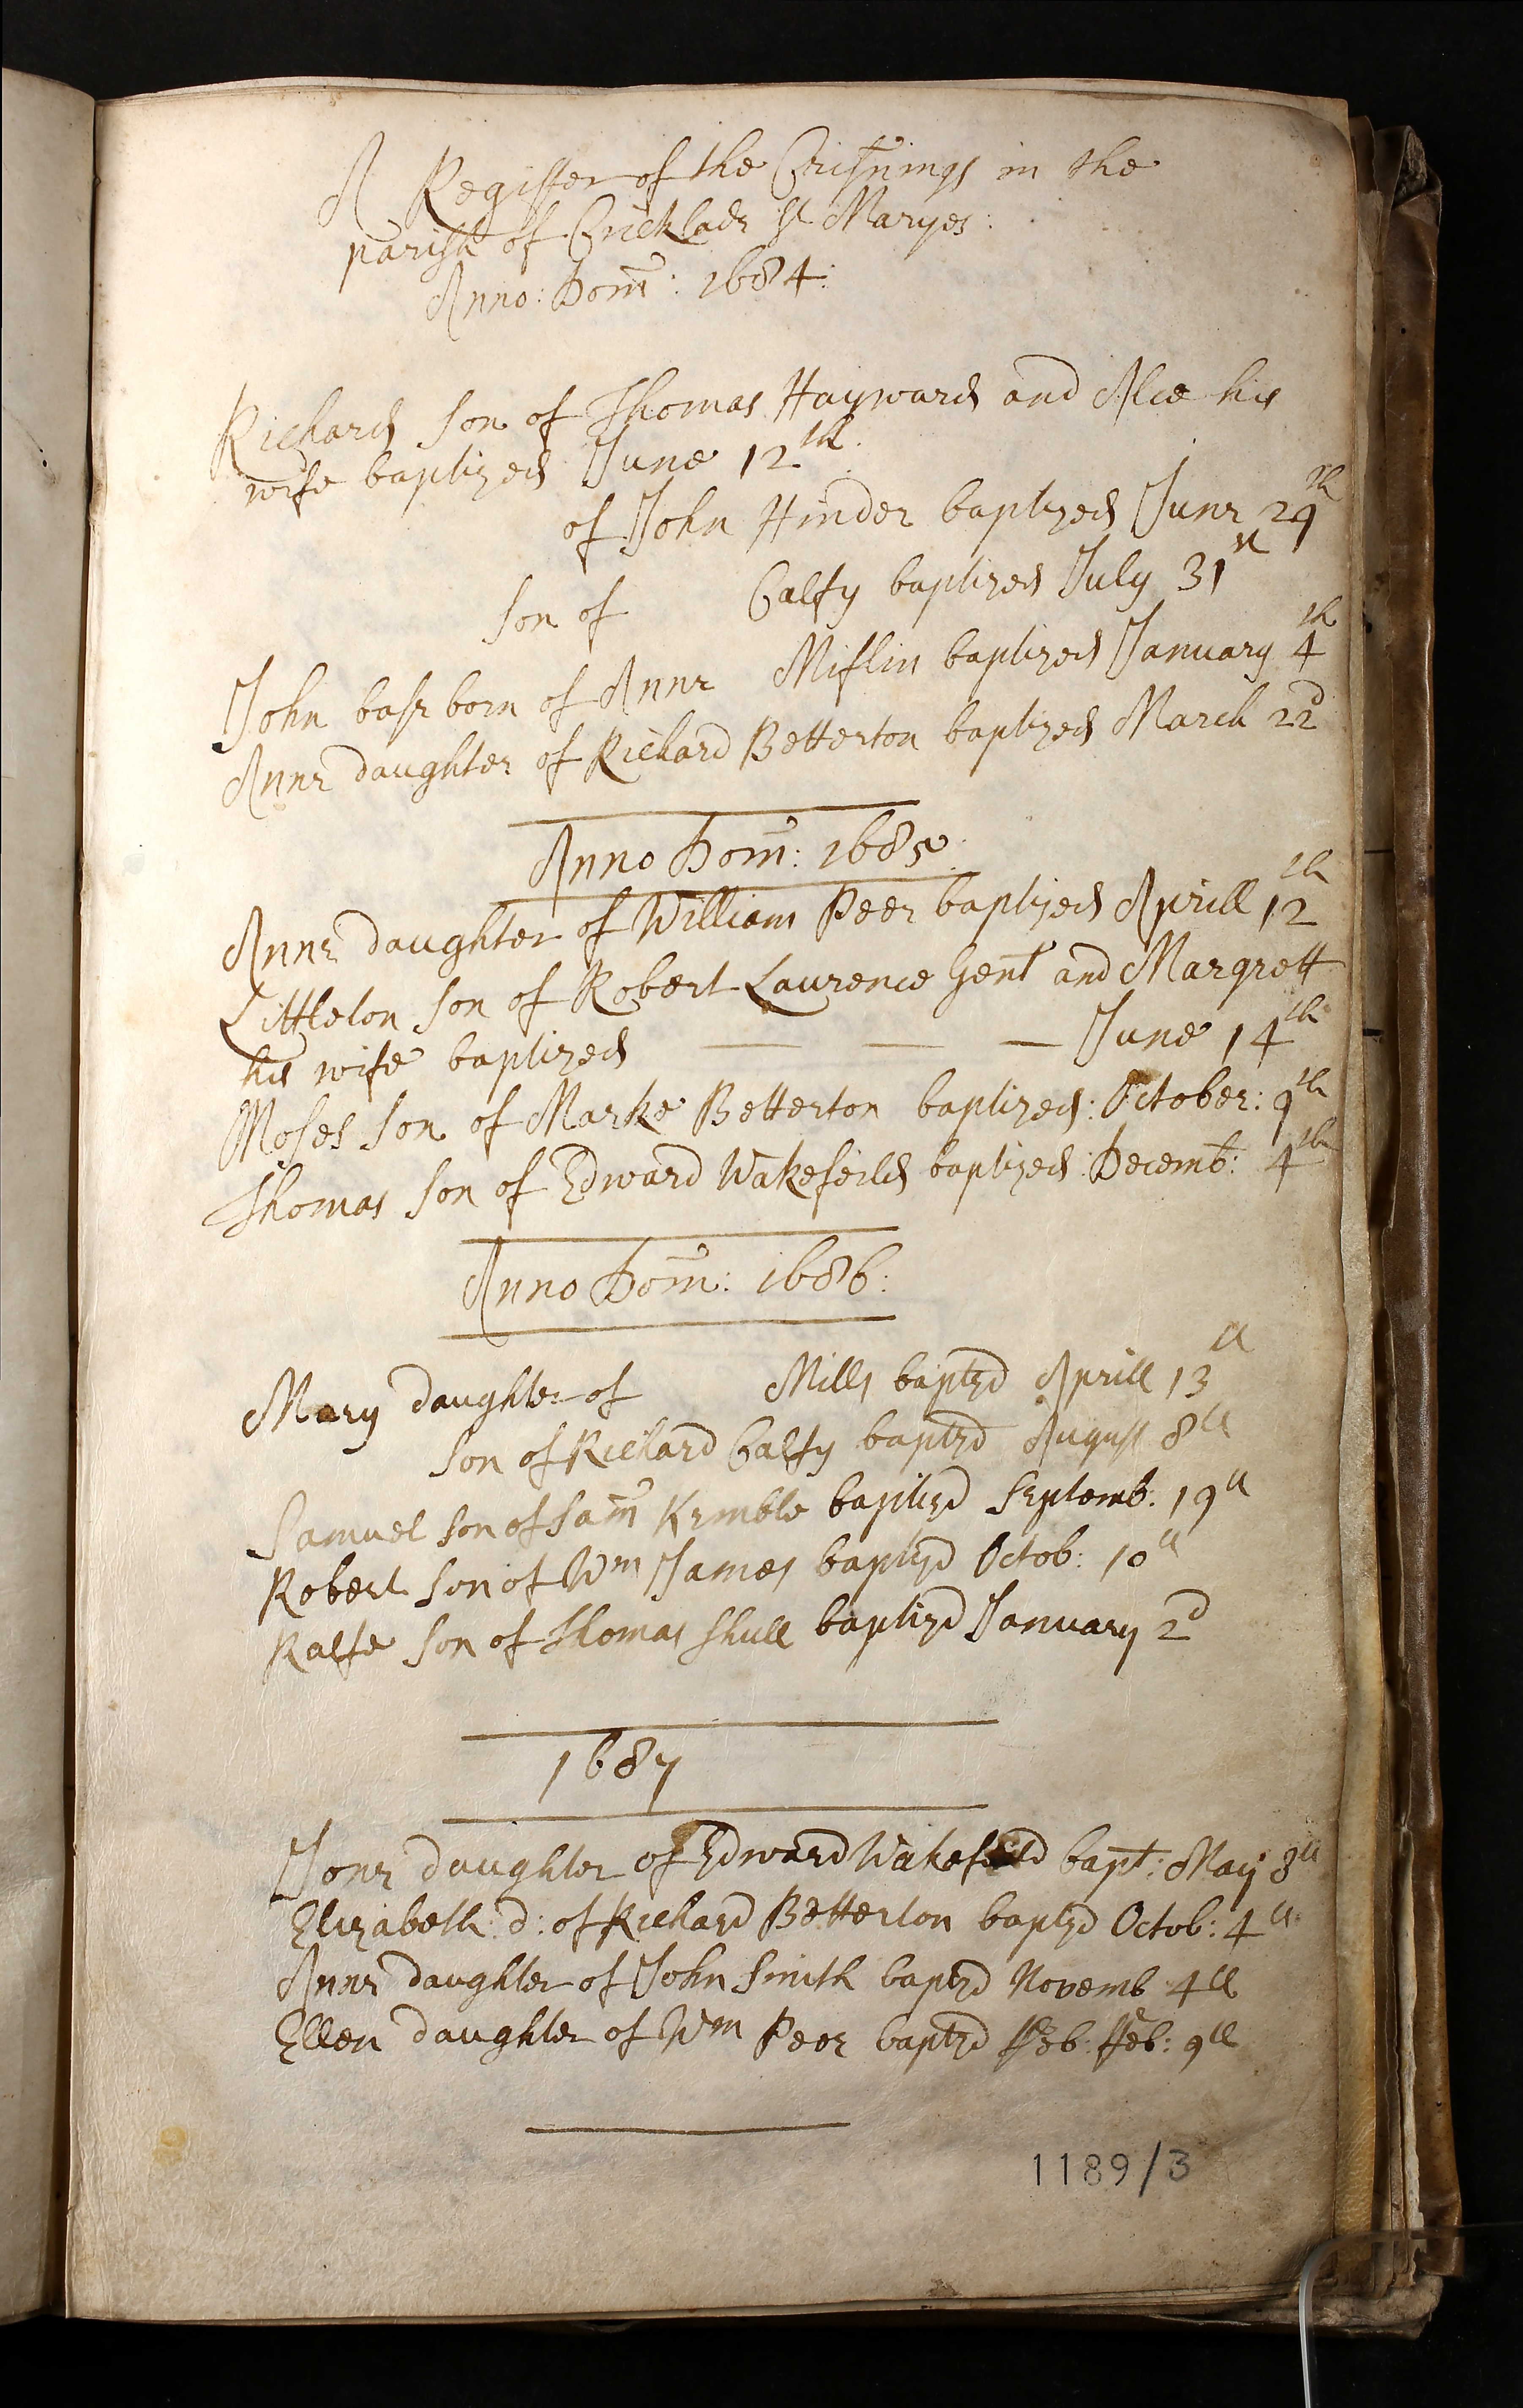 A Register of the Cristnings in the
parish of Cricklade St Maryes:
Anno: Dom̃: 1684:
Richard son of Thomas Hayward and Alce his
wife baptized June 12th
of John Hinder baptized June 29th
son of Calfy baptized July 31st
John base born of Anne Miflin baptized January 4th
Anne daughter of Richard Betterton baptized March 22d
Anno Dom̃: 1685
Anne daughter of William Peer baptized Aprill 12th
Littleton son of Robert Laurence Gent and Margrett
his wife baptized — — — June 14th
Moses son of Marke Betterton baptized: October: 9th
Thomas son of Edward Wakefeild baptized: Decemb: 4th
Anno Dom̃: 1686:
Mary daughter of Mills baptzd Aprill 13th
son of Richard Calfy baptzd August 8th
Samuel son of Sam̃ Kemble baptizd Septemb: 19th
Robert son of Wm James baptizd Octob: 10th
Ralfe son of Thomas Shull baptizd January 2d
1687
Jone daughter of Edward Wakefeild bapt: May 8th
Elizabeth: d: of Richard Betterton baptzd Octob: 4th
Anne daughter of John Smith baptzd Novemb 4th
Ellen daughter of Wm Peer baptzd ffeb: ffeb: 9th
1189/3